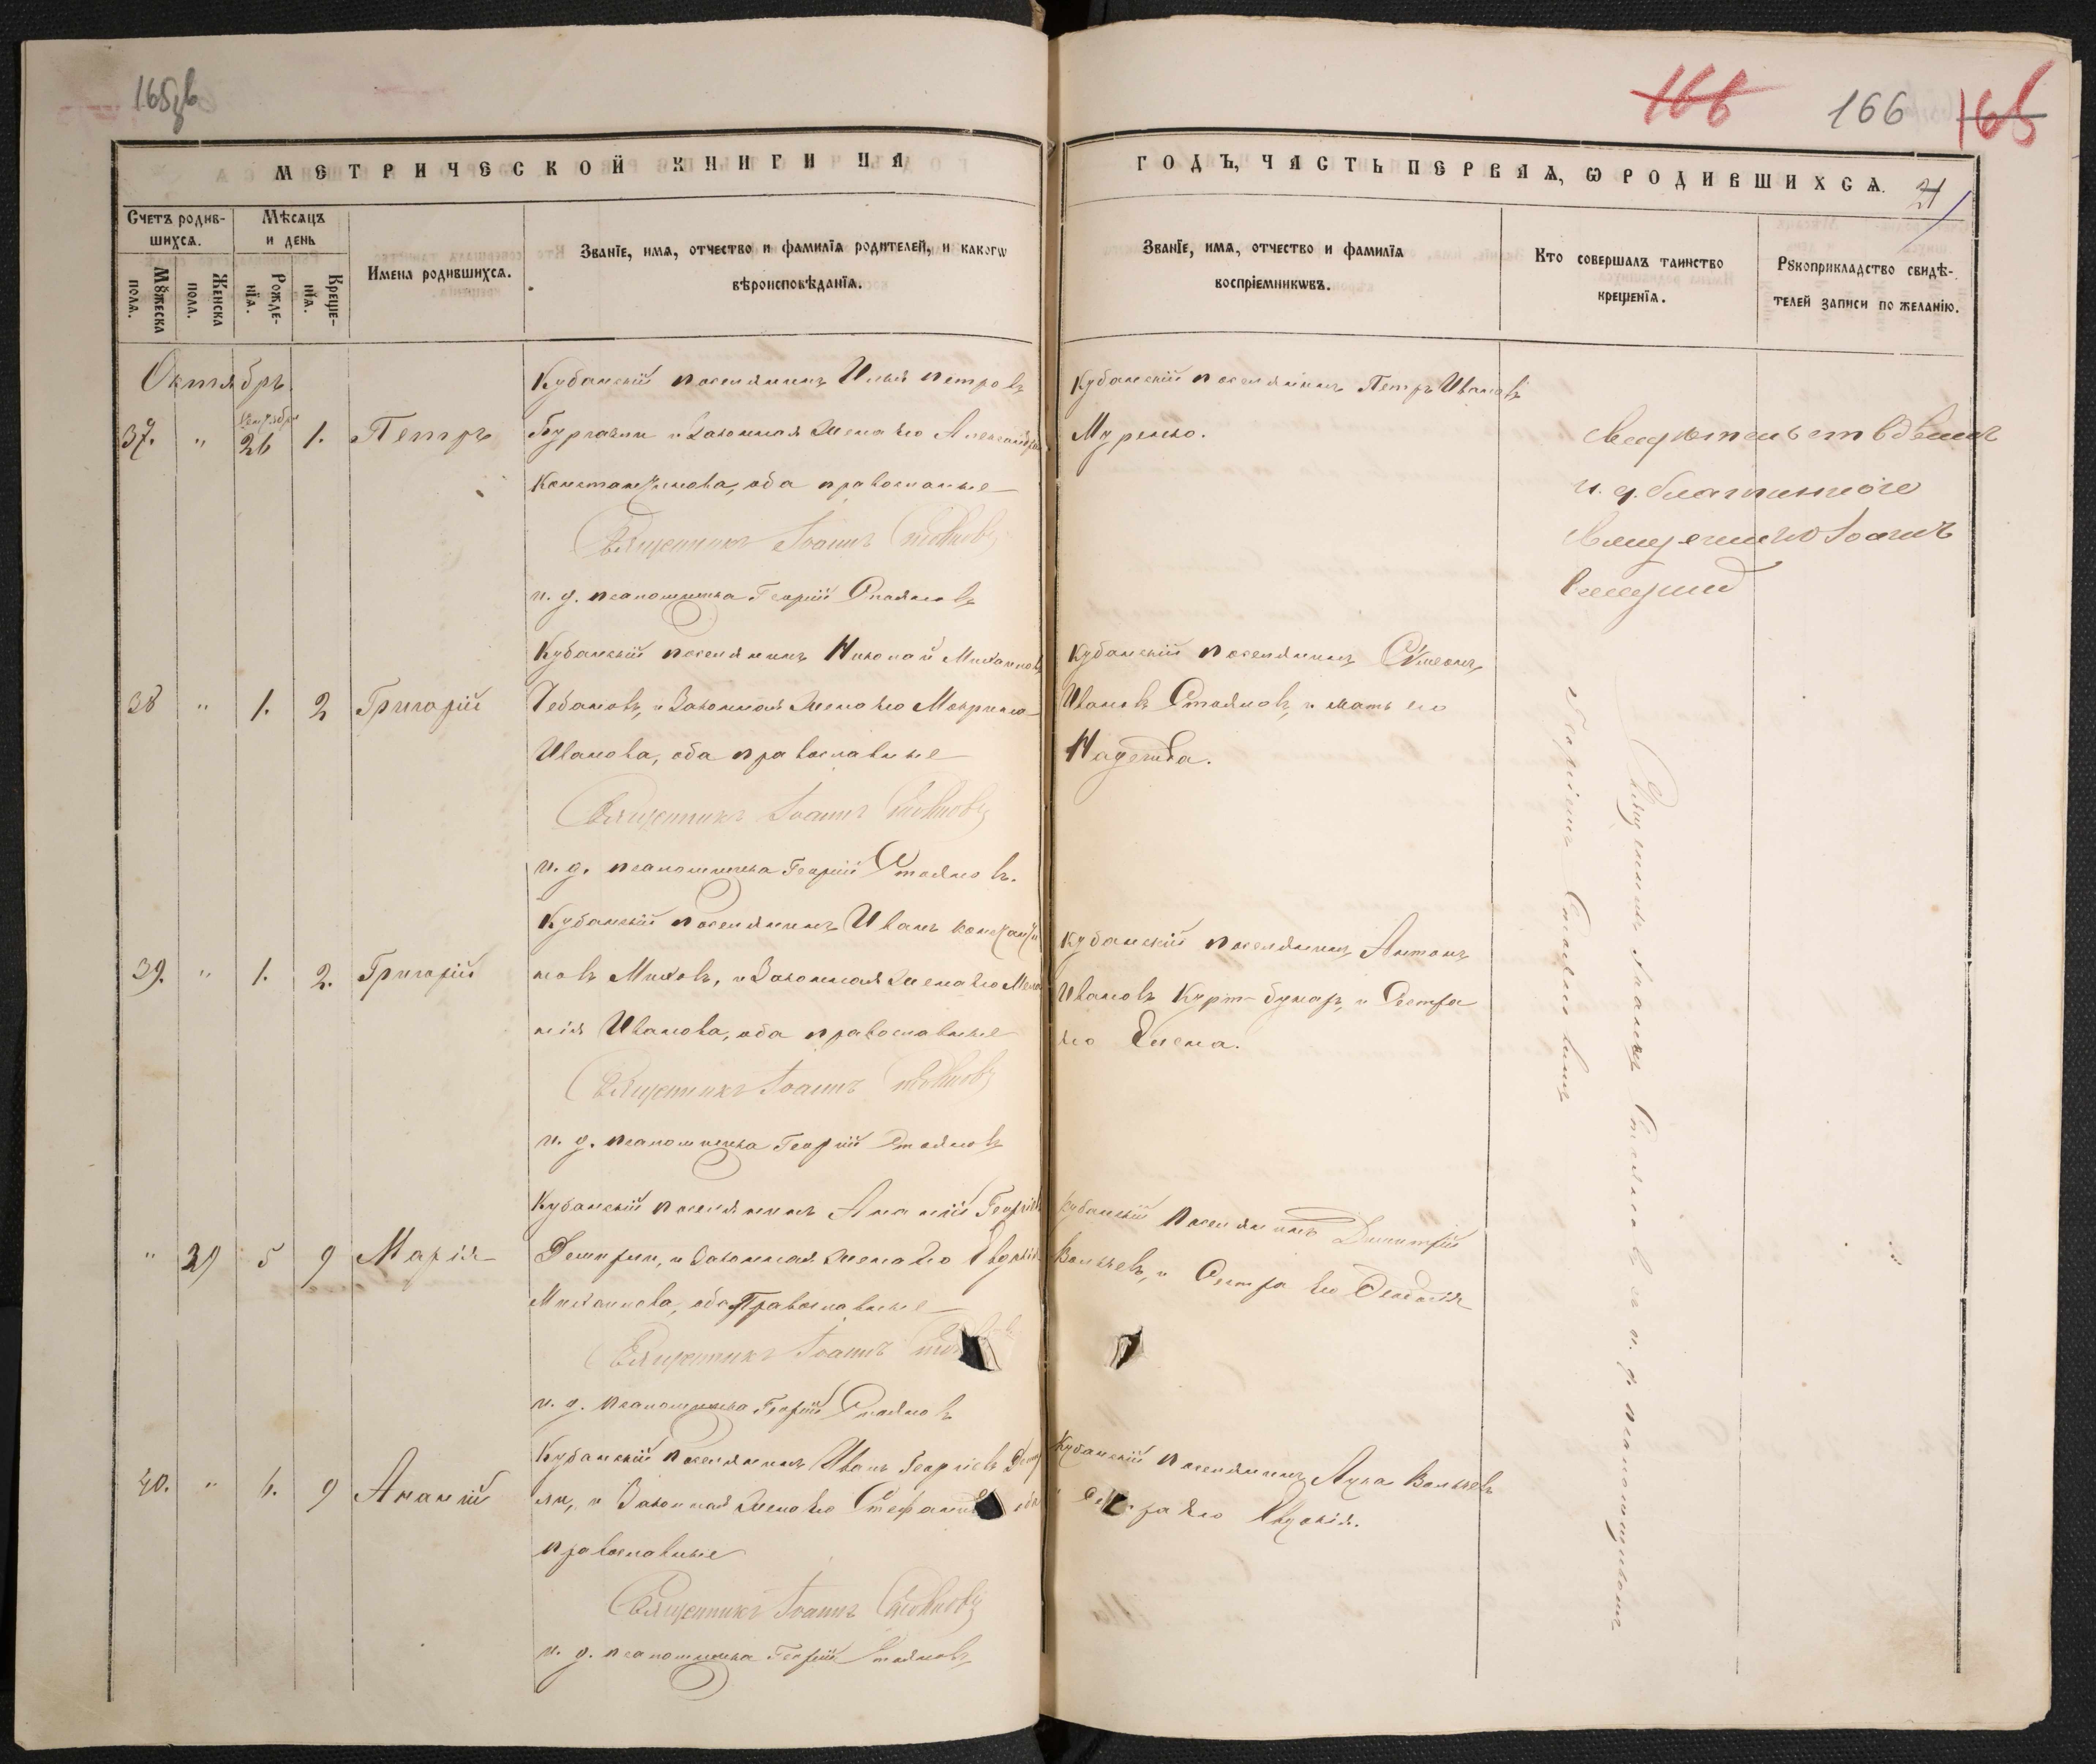 165 об
166
166
165
МЕТРИЧЕСКОЙ КНИГИ НА
ГОДЪ, ЧАСТЬ ПЕРВАЯ, Ѡ РОДИВШИХСѦ.
21
Счетъ родив-
шихсѧ.
Мѣсѧцъ
и день
Мꙋжеска
пола.
Женска
пола.
Рожде-
нїѧ.
Креще-
нїѧ.
Имена родившихсѧ.
Званїе, имѧ, отчество и фамилїѧ родителей, и какогѡ
вѣроисповѣданїѧ.
Званїе, имѧ, отчество и фамилїѧ
воспрїемникѡвъ.
Кто совершалъ таинство
крещенїѧ.
Рꙋкоприкладство свидѣ-
телей записи по желанїю.
Октябрь
37. " Сентября 26 1. Петръ
Кубанскій поселянинъ Илья Петровъ
Бургаӂи и законная жена его Александра
Константинова, оба православные
Священникъ Іоаннъ Стояновъ
и. д. псаломщика Георгій Стояновъ
Кубанскій поселянинъ Петръ Ивановъ
Муренко.
Свидетельствовалъ
и. д. благочиннаго
Священникъ Іоаннъ
38 " 1. 2 Григорій
Кубанскій поселянинъ Николай Михаиловъ
Чебановъ, и законная жена его Маврина
Иванова, оба православные
Священникъ Іоаннъ Стояновъ
и. д. псаломщика Георгій Стояновъ.
Кубанскій поселянинъ Симеонъ
Ивановъ Стояновъ, и мать его
Надежда.
39. " 1. 2. Григорій
Кубанскій поселянинъ Иванъ Константи
новъ Митовъ, и законная жена его Мела
нія Иванова, оба православные
Священникъ Іоаннъ Стояновъ
и. д. псаломщика Георгій Стояновъ
Кубанскій поселянинъ Антонъ
Ивановъ Курт-бунаръ, и сестра
его Елена.
" 29 5 9 Марія
Кубанскій поселянинъ Ананій Георгіевъ
Демирли, и законная жена его Евдокія
Михаилова, оба Православные
Священникъ Іоаннъ
и. д. псаломщика Георгій Стояновъ
Кубанскій поселянинъ Димитрій
Вольчевъ, и сестра его Феодосія
40. " 6. 9 Ананій
Кубанскій поселянинъ Иванъ Георгіевъ Демир
ли, и законная жена его Стефанида оба
православные
Священникъ Іоаннъ Стояновъ
и. д. псаломщика Георгій Стояновъ
Кубанскій поселянинъ Лука Вольчевъ
и сестра его Евдокія.
Священникъ Іоаннъ Стояновъ съ и. д. псаломщикомъ
Георгіемъ Стояновымъ